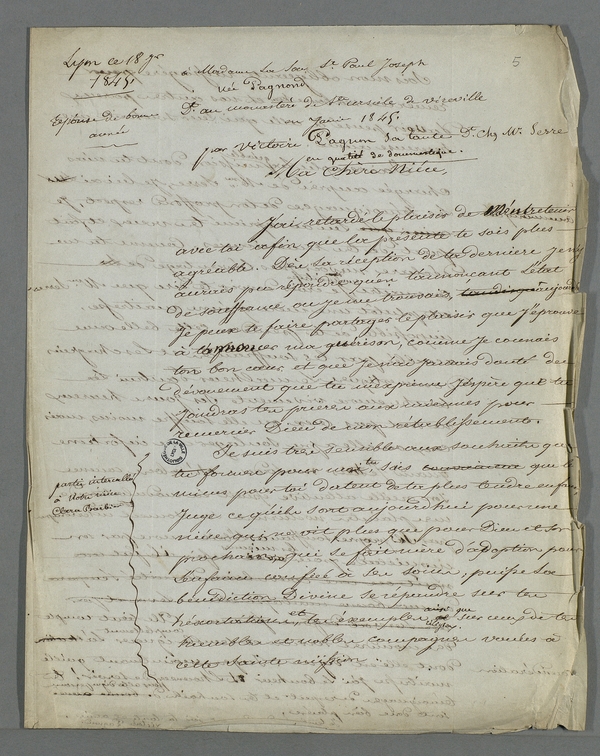 Lyon ce 18 9r
1845.
5
à Madame La Sœur St Paul Joseph
née Pagnond
De au monastère de Ste ursule de Viriville
en 1845.
Réponse de bonne
année
par Victoire Pagnon sa tante De Chez Mr Serre
en qualité de domestique.
Ma Chère Nièce,
J'ai retardé le plaisir de m'entretenir
avec toi afin que la présente te sois plus
agréable. Dès la réception de ta dernière je n'y
aurais pu répondre qu'en t'annonçant l'état
de souffrance ou je me trouvais, aujourd'hui
je peux te faire partager le plaisir que j'éprouve
à t'annoncer ma guérison, comme je connais
ton bon cœur et que je n'ai jamais douté du
dévouement que tu m'exprime j'espère que tu
joindras tes prières aux miennes pour
remercier Dieu de mon rétablissement.
Je suis très sensible aux souhaits que
tu formes pour moi, sois que les
miens pour toi datent de ta plus tendre enfance
Juge ce qu'ils sont aujourd'hui pour une
nièce qui ne vit plus que pour Dieu et son
prochain qui se fait mère d'adoption pour
l'enfance confiée à ses soins, puisse sa
bénédiction Divine se répendre sur tes
exhortations et tes exemples ainsi que sur ceux de tes
humbles et nobles compagnes vouées à
cette Sainte mission
partie intercallée
à notre nièce
Clara Baubin